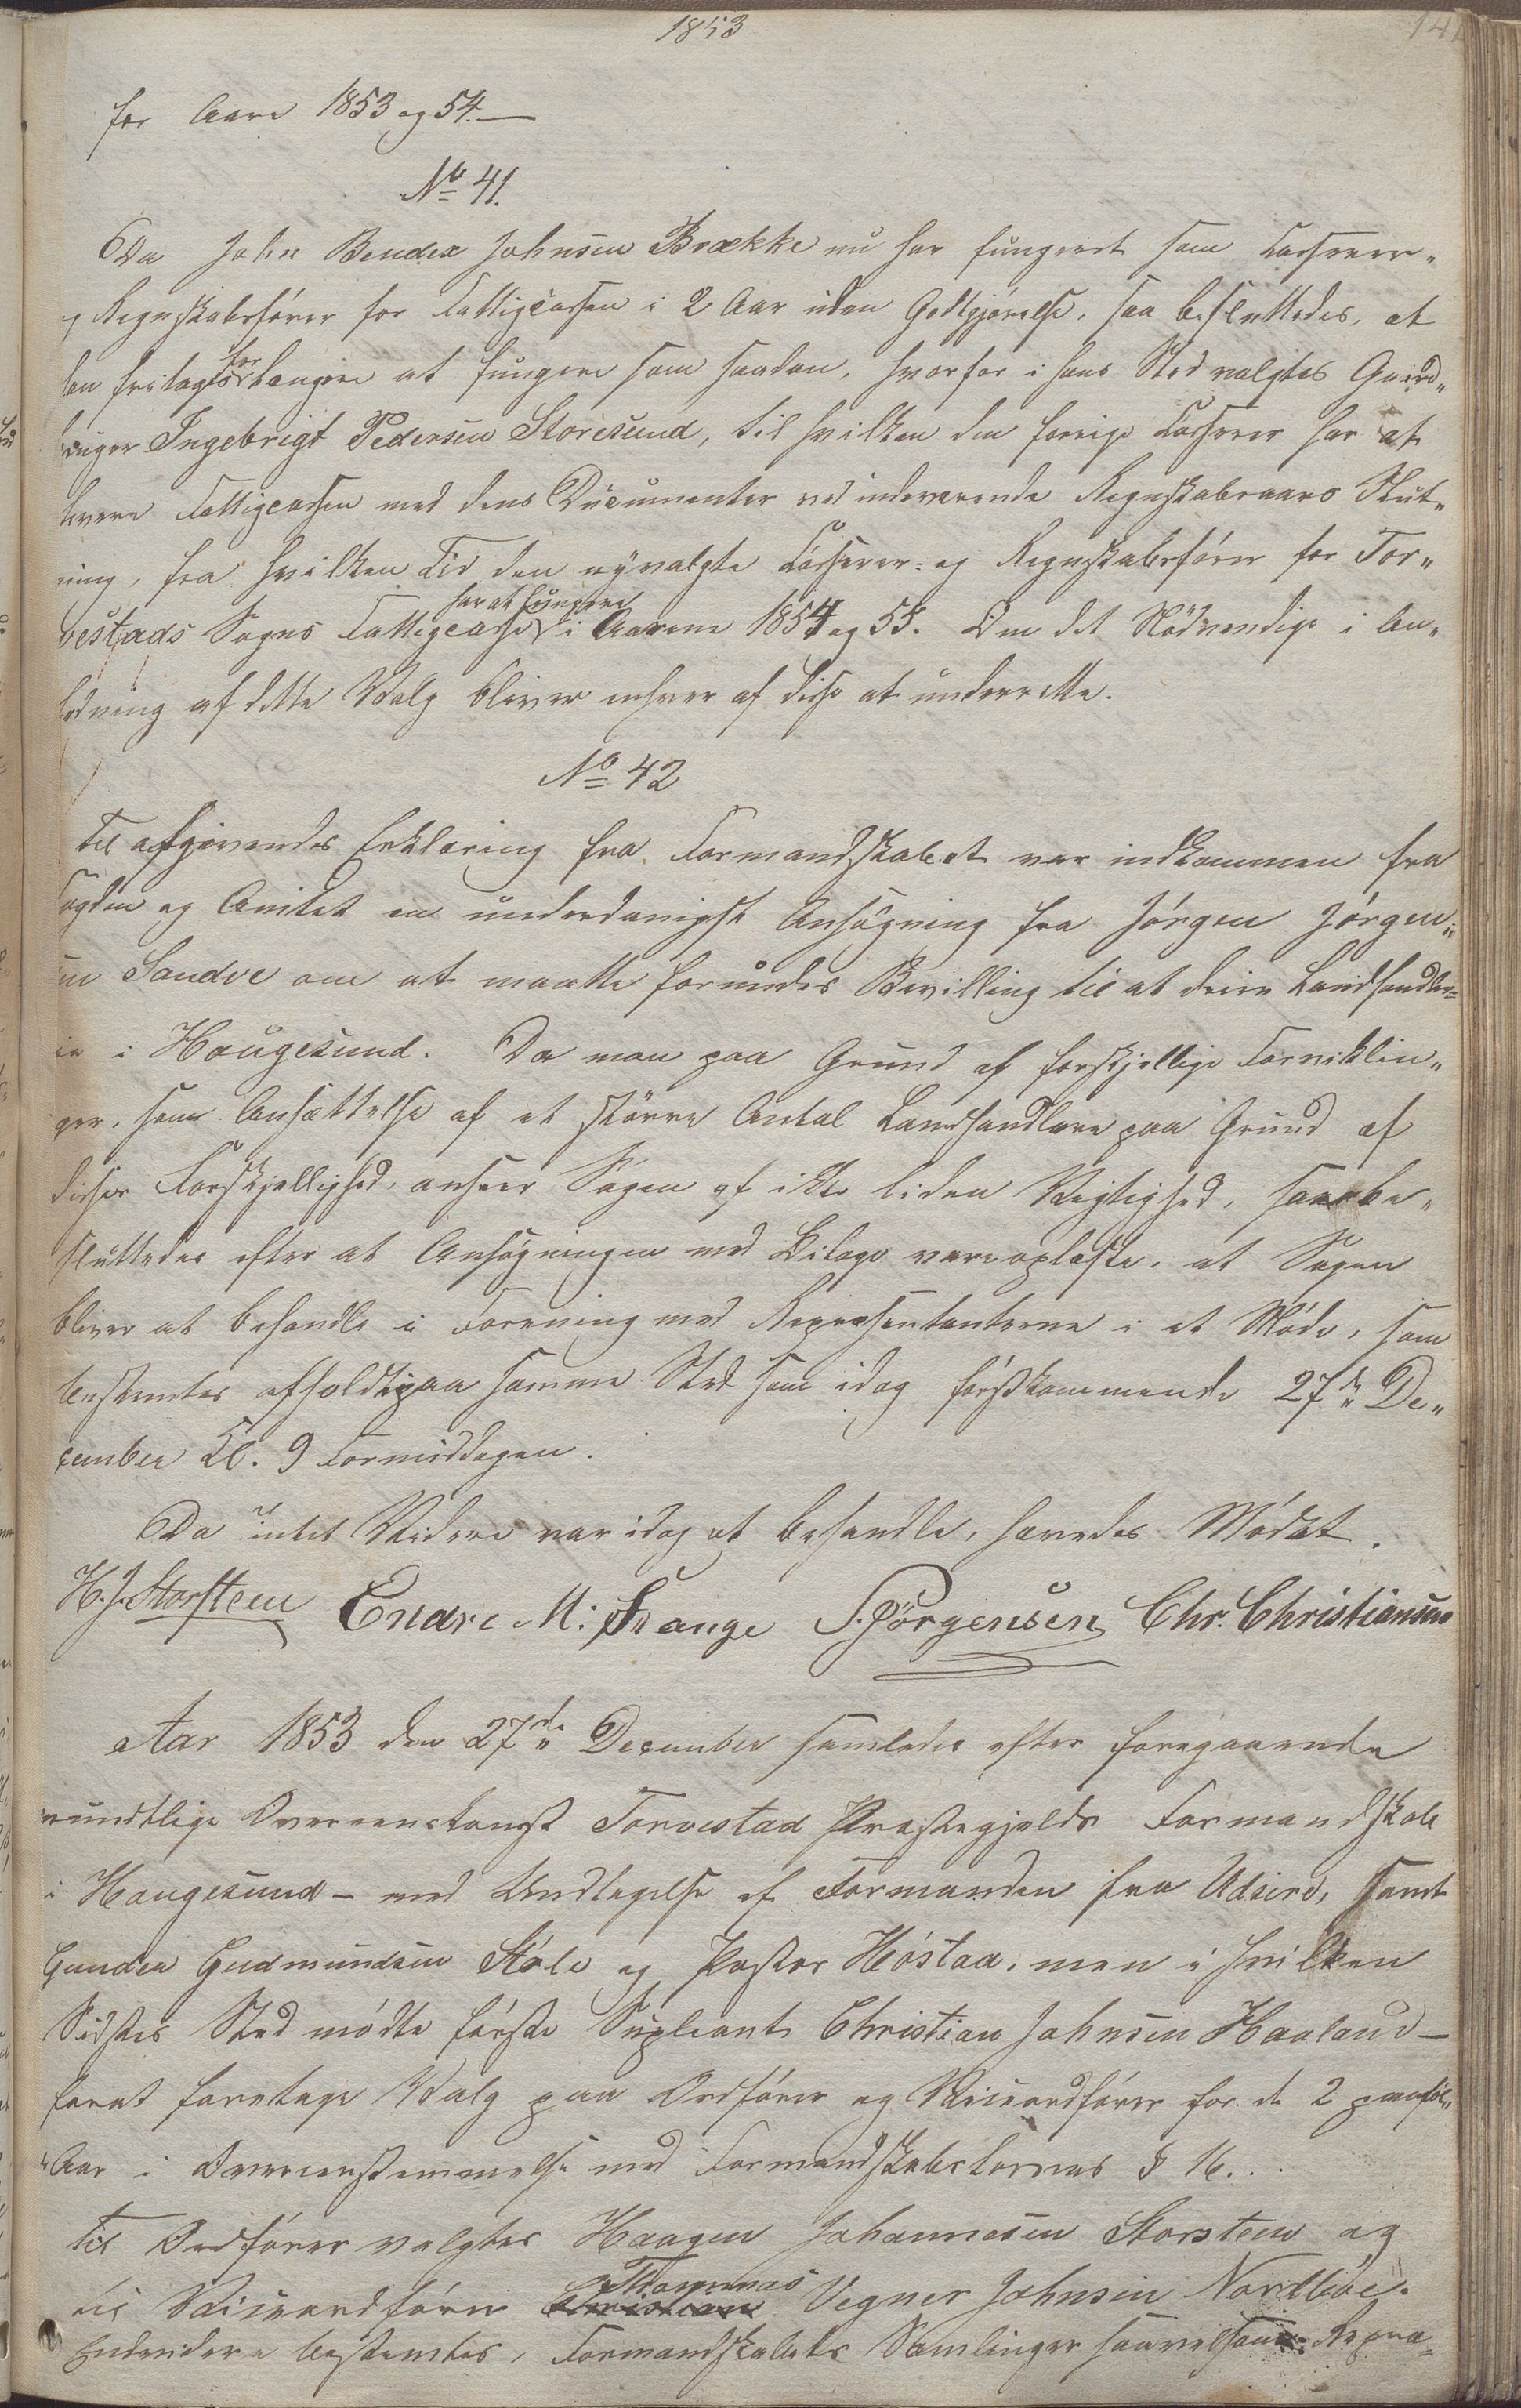 1853
141
for Aare 1853 og 54.—
No 41.
Da John Bendex Johnsen Brække nu har fungeret som Casserer-
og Regnskabsfører for Fattigcassen i 2 Aar uden Godtgjørelse, saa besluttedes, at
han fritages for længere at fungere som saadan, hvorfor i hans Sted valgtes Gaard-
bruger Ingebrigt Pedersen Storesund, til hvilken den forrige Casserer har at
levere Fattigcassen med dens Documenter ved indeværende Regnskabsaars Slut-
ning, fra hvilken Tid den nyvalgte Casserer- og Regnskabsfører for Tor-
vestads Sogns Fattigcasse har at fungere i Aarene 1854 og 55. Om det Nödvendige i An-
ledning af dette Valg bliver enhver af disse at underrette.
No 42
Til afgivendes Erklæring fra Formandskabet var indkommen fra
Fogden og Amtet en underdanigst Ansögning fra Jörgen Jörgen-
sen Sandve om at maatte forundes Bevilling til at drive Landhandler-
ie i Haugesund. Da man paa Grund af forskjellige Forviklin-
ger, som Ansættelse af et större Antal Landhandlere paa Grund af
disses Forskjellighed, anseer Sagen af ikke liden Vigtighed, saa be-
sluttedes efter at Ansögningen med Bilage vare oplæste, at Sagen
bliver at behandle i Forening med Repræsentanterne i et Möde, som
bestemtes afholdt paa samme Sted som idag förstkommende 27de De-
cember Kl. 9 Formiddagen.
Da intet Videre var idag at behandle, hævedes Mödet.
H. J. Storsteen Endre M. Svange S. Jörgensen Chr. Christiansen
Aar 1853 den 27de December samledes efter foregaaende
mundtlige Overeenskomst Torvestad Præstegjelds Formandskab
i Haugesund - med Undtagelse af Formanden fra Udsire, samt
Gunder Gudmundsen Stole og Pastor Höstad, men i hvilken
Sidstes Sted mödte förste Supleant Christian Johnsen Haaland -
forat foretage Valg paa Ordförer og Viceordförer for de 2 paaföl-
Aar i Overeensstemmelse med Formandskabslovens § 16...
Til Ordförer valgtes Haagen Johannesen Storsteen og
til Viceordförer Christian Thommas Vegner Johnsen Nordböe.
Endvidere bestemtes, Formandskabets Samlinger saavelsom Repræ-